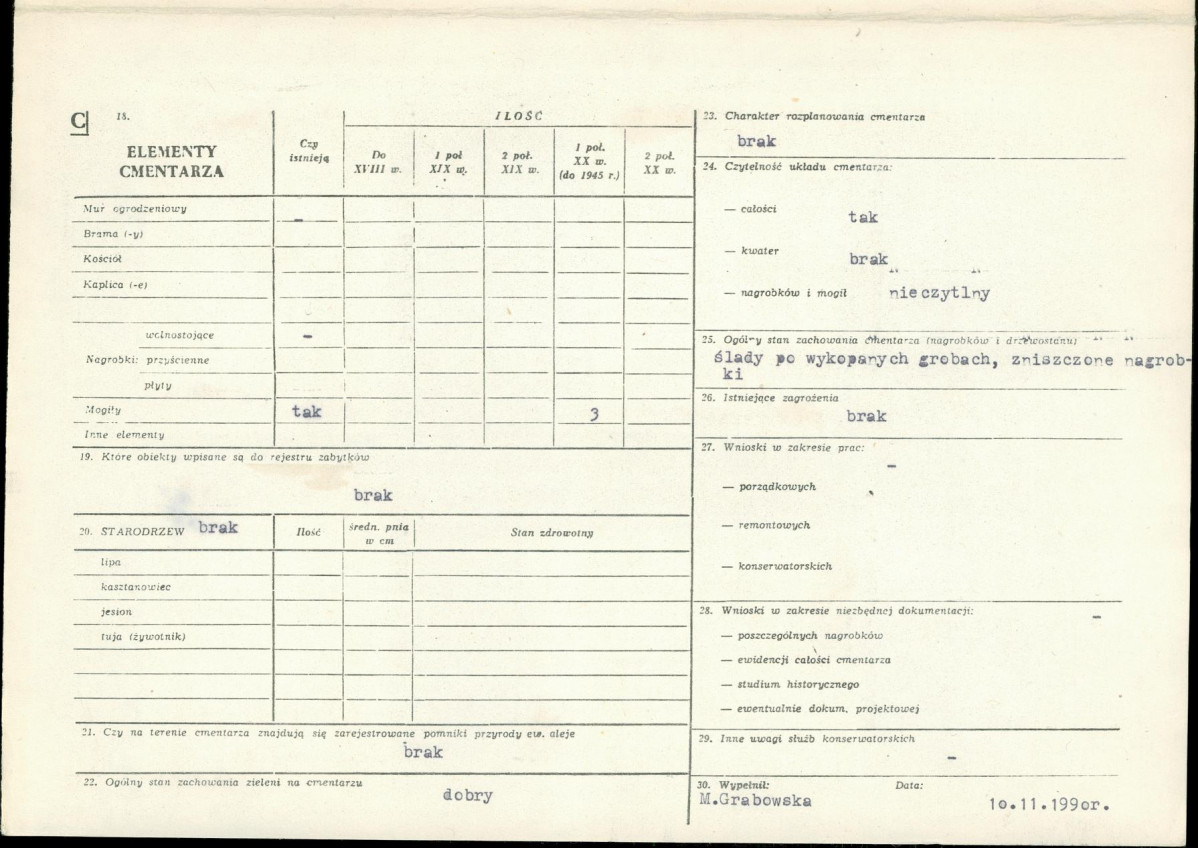 C 18.
ELEMENTY
CMENTARZA
Czy
istnieją
ILOŚĆ
Do
XVIII w.
1 poł
XIX w.
2 poł.
XIX w.
1 poł.
XX w.
(do 1945 r.)
2 poł.
XX w.
Mur ogrodzeniowy –
Brama (-y)
Kościół
Kaplica (-e)
wolnostojące –
Nagrobki: przyścienne
płyty
Mogiły tak 3
Inne elementy
19. Które obiekty wpisane są do rejestru zabytków
brak
20. STARODRZEW brak
Ilość
średn. pnia
w cm
Stan zdrowotny
lipa
kasztanowiec
jesion
tuja (żywotnik)
21. Czy na terenie cmentarza znajdują się zarejestrowane pomniki przyrody ew. aleje
brak
22. Ogólny stan zachowania zieleni na cmentarzu
dobry
23. Charakter rozplanowania cmentarza
brak
24. Czytelność układu cmentarza:
— całości tak
— kwater brak
— nagrobków i mogił nieczytlny
25. Ogólny stan zachowania cmentarza (nagrobków i drzewostanu)
ślady po wykopanych grobach, zniszczone nagrob-
ki
26. Istniejące zagrożenia
brak
27. Wnioski w zakresie prac:
–
— porządkowych
— remontowych
— konserwatorskich
28. Wnioski w zakresie niezbędnej dokumentacji: –
— poszczególnych nagrobków
— ewidencji całości cmentarza
— studium historycznego
— ewentualnie dokum. projektowej
29. Inne uwagi służb konserwatorskich
–
30. Wypełnił: Data:
M.Grabowska 1o.11.199or.